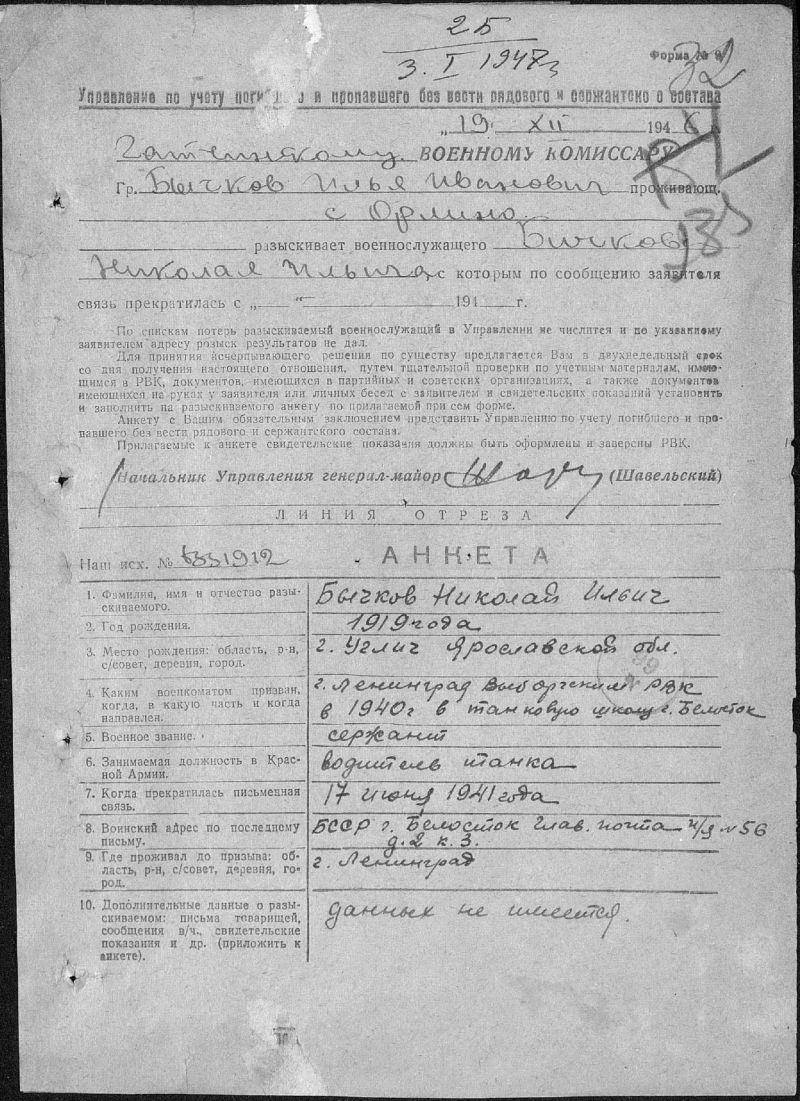 25
3. I 1947г
Форма № 9
32
Управление по учету погибшего и пропавшего без вести рядового и сержантского состава
„19„ XII 1946
Гатчинскому ВОЕННОМУ КОМИССАРУ
Гр. Бычков Илья Иванович проживающ.
с Орлино
разыскивает военнослужащего Бычкова
Николая Ильича, с которым по сообщению заявителя
связь прекратилась с „ — “ 194 г.
По спискам потерь разыскиваемый военнослужащий в Управлении не числится и по указанному
заявителем адресу розыск результатов не дал.
Для принятия исчерпывающего решения по существу предлагается Вам в двухнедельный срок
со дня получения настоящего отношения, путем тщательной проверки по учетным материалам, имею-
щимся в РВК, документов, имеющихся в партийных и советских организациях, а также документов
имеющихся на руках у заявителя или личных бесед с заявителем и свидетельских показаний установить
и заполнить на разыскиваемого анкету по прилагаемой при сем форме.
Анкету с Вашим обязательным заключением представить Управлению по учету погибшего и про-
павшего без вести рядового и сержантского состава.
Прилагаемые к анкете свидетельские показания должны быть оформлены и заверены РВК.
Начальник Управления генерал-майор (Шавельский)
ЛИНИЯ ОТРЕЗА
Наш исх. № АНКЕТА
1. Фамилия, имя и отчество разы-
скиваемого.
Бычков Николай Ильич
2. Год рождения.
1919 года
3. Место рождения: область, р-н,
с/совет, деревня, город.
г. Углич Ярославской обл.
4. Каким военкоматом призван,
когда, в какую часть и когда
направлен.
г. Ленинград Выборгским РВК
в 1940г в танковую школу г. Белосток
5. Военное звание.
сержант
6. Занимаемая должность в Крас-
ной Армии.
водитель танка
7. Когда прекратилась письменная
связь.
17 июня 1941 года
8. Воинский адрес по последнему
письму.
БССР г. Белосток Глав. почта п/я № 56
д. 2 к. 3.
9. Где проживал до призыва: об-
ласть, р-н, с/совет, деревня, го-
род.
г. Ленинград
10. Дополнительные данные о разы-
скиваемом: письма товарищей,
сообщения в/ч., свидетельские
показания и др. (приложить к
анкете).
данных не имеется.